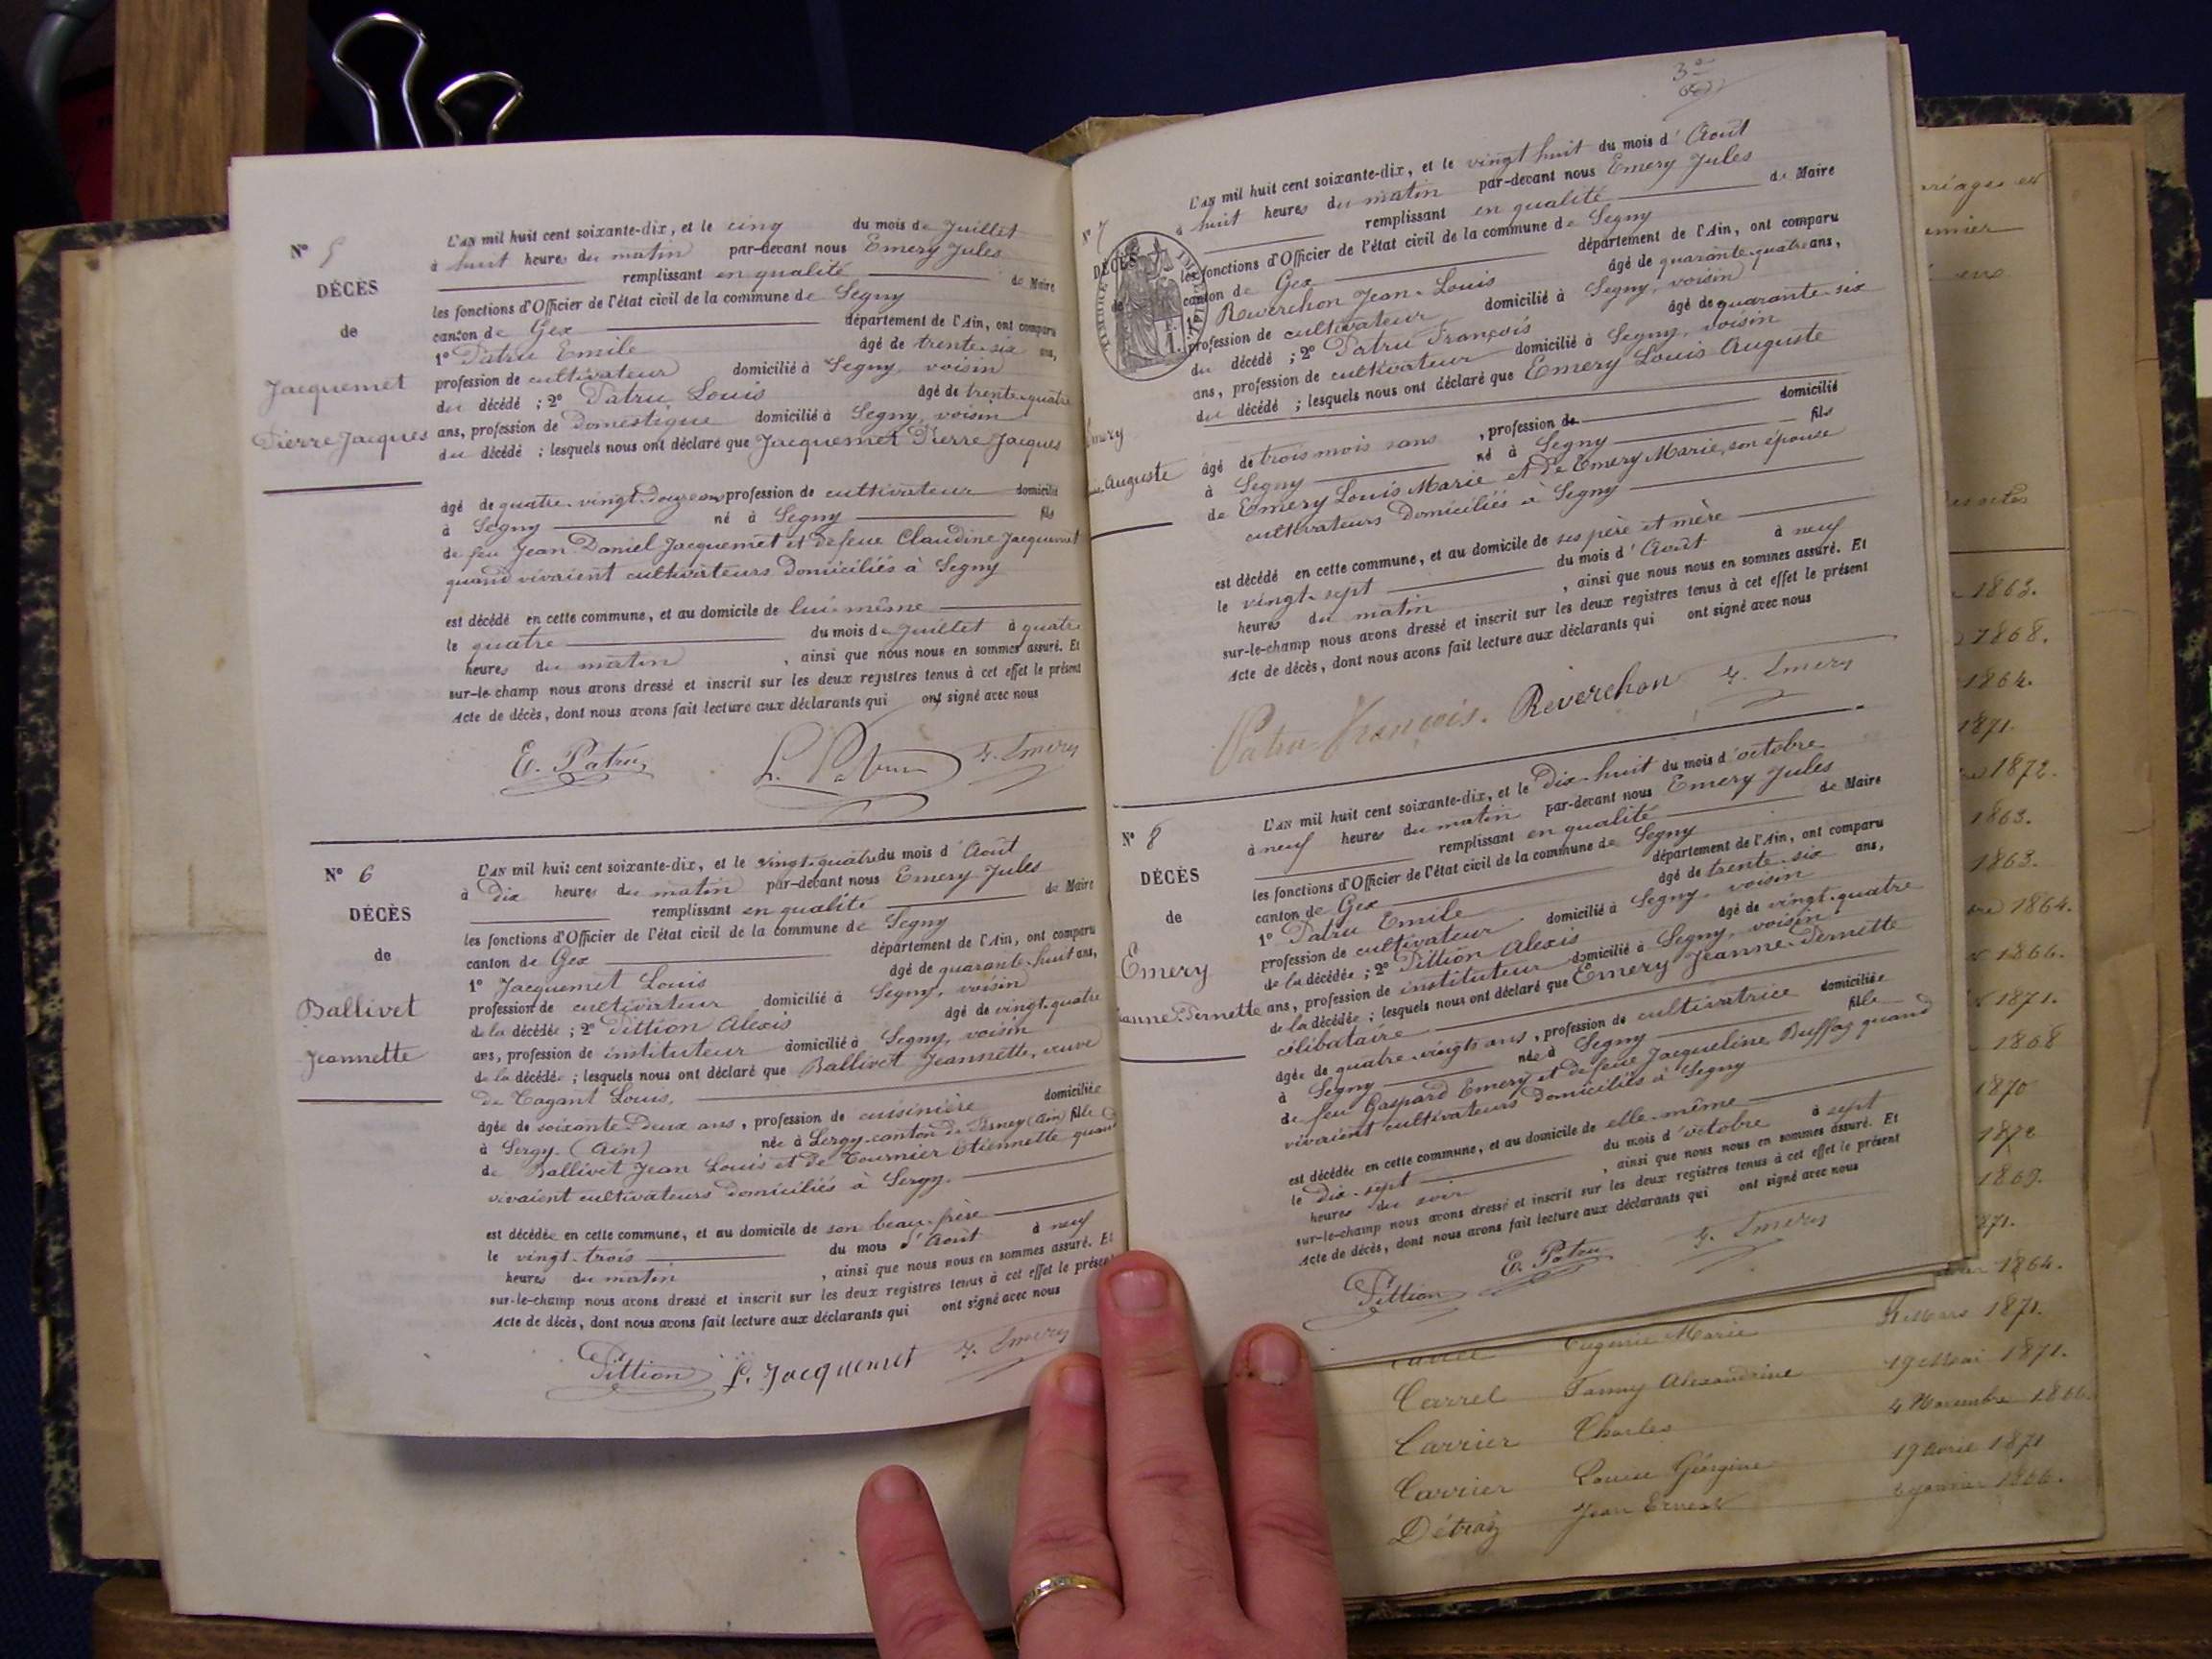 N° 5
DÉCÈS
de
Jacquemet
Pierre Jacques
L'AN mil huit cent soixante-dix, et le cinq du mois de Juillet
à huit heures du matin par-devant nous Emery Jules
remplissant en qualité de Maire
les fonctions d'Officier de l'état civil de la commune de Segny
canton de Gex département de l'Ain, ont comparu
1° Patru Emile âgé de trente-six ans,
profession de cultivateur domicilié à Segny, voisin
du décédé ; 2° Patru Louis âgé de trente-quatre
ans, profession de Domestique domicilié à Segny, voisin
du décédé ; lesquels nous ont déclaré que Jacquemet Pierre Jacques
âgé de quatre-vingt-douze ans profession de cultivateur domicilié
à Segny né à Segny fils
de feu Jean Daniel Jacquemet et de feue Claudine Jacquemet
quand vivaient cultivateurs Domiciliés à Segny
est décédé en cette commune, et au domicile de lui-même
le quatre du mois de Juillet à quatre
heures du matin , ainsi que nous nous en sommes assuré. Et
sur-le-champ nous avons dressé et inscrit sur les deux registres tenus à cet effet le présent
Acte de décès, dont nous avons fait lecture aux déclarants qui ont signé avec nous
E. Patru L. Patru J. Emery
N° 6
DÉCÈS
de
Ballivet
Jeannette
L'AN mil huit cent soixante-dix, et le vingt-quatre du mois d'Août
à Dix heures du matin par-devant nous Emery Jules
remplissant en qualité de Maire
les fonctions d'Officier de l'état civil de la commune de Segny
canton de Gex département de l'Ain, ont comparu
1° Jacquemet Louis âgé de quarante-huit ans,
profession de cultivateur domicilié à Segny, voisin
de la décédée ; 2° Pittion Alexis âgé de vingt-quatre
ans, profession de instituteur domicilié à Segny, voisin
de la décédée ; lesquels nous ont déclaré que Ballivet Jeannette, veuve
De Tagant Louis,
âgée de soixante Deux ans, profession de cuisinière domiciliée
à Sergy (Ain) née à Sergy canton de Ferney (Ain) fille
de Ballivet Jean Louis et de Tournier Etiennette quand
vivaient cultivateurs domiciliés à Sergy.
est décédée en cette commune, et au domicile de son beau-frère
le vingt-trois du mois d'Août à neuf
heures du matin , ainsi que nous nous en sommes assuré. Et
sur-le-champ nous avons dressé et inscrit sur les deux registres tenus à cet effet le présent
Acte de décès, dont nous avons fait lecture aux déclarants qui ont signé avec nous
Pittion L. Jacquemet J. Emery
3e
N° 7
DÉCÈS
de
Emery
Auguste
TIMBRE IMPÉRIAL
L'AN mil huit cent soixante-dix, et le vingt huit du mois d'Août
à huit heures du matin par-devant nous Emery Jules
remplissant en qualité de Maire
les fonctions d'Officier de l'état civil de la commune de Segny
canton de Gex département de l'Ain, ont comparu
1° Reverchon Jean-Louis âgé de quarante-quatre ans,
profession de cultivateur domicilié à Segny, voisin
du décédé ; 2° Patru François âgé de quarante-six
ans, profession de cultivateur domicilié à Segny, voisin
du décédé ; lesquels nous ont déclaré que Emery Louis Auguste
âgé de trois mois sans , profession de domicilié
à Segny né à Segny fils
de Emery Louis Marie et de Emery Marie, son épouse
cultivateurs Domiciliés à Segny
est décédé en cette commune, et au domicile de ses père et mère
le vingt-sept du mois d'Août à neuf
heures du matin , ainsi que nous nous en sommes assuré. Et
sur-le-champ nous avons dressé et inscrit sur les deux registres tenus à cet effet le présent
Acte de décès, dont nous avons fait lecture aux déclarants qui ont signé avec nous
Patru François. Reverchon J. Emery
N° 8
DÉCÈS
de
Emery
Jeanne-Pernette
L'AN mil huit cent soixante-dix, et le Dix-huit du mois d'octobre
à neuf heures du matin par-devant nous Emery Jules
remplissant en qualité de Maire
les fonctions d'Officier de l'état civil de la commune de Segny
canton de Gex département de l'Ain, ont comparu
1° Patru Emile âgé de trente-six ans,
profession de cultivateur domicilié à Segny, voisin
de la décédée ; 2° Pittion Alexis âgé de vingt-quatre
ans, profession de instituteur domicilié à Segny, voisin
de la décédée ; lesquels nous ont déclaré que Emery Jeanne-Pernette
célibataire
âgée de quatre-vingts ans, profession de cultivatrice domiciliée
à Segny née à Segny fille
de feu Gaspard Emery et de feue Jacqueline Buffaz quand
vivaient cultivateurs domiciliés à Segny
est décédée en cette commune, et au domicile de elle-même
le Dix-sept du mois d'octobre à sept
heures du soir , ainsi que nous nous en sommes assuré. Et
sur-le-champ nous avons dressé et inscrit sur les deux registres tenus à cet effet le présent
Acte de décès, dont nous avons fait lecture aux déclarants qui ont signé avec nous
Pittion E. Patru J. Emery
1863.
1868.
1864.
1871.
1872.
1863.
1863.
1864.
1866.
1871.
1868
1870
1872
1869.
1871.
1864.
Eugenie Marie Mars 1871.
Carrel Fanny Alexandrine 19 Mai 1871.
Carrier Charles 4 Novembre 1866.
Carrier Louise Géorgine 19 Avril 1871
Détraz Jean Ernest 6 Janvier 1866.